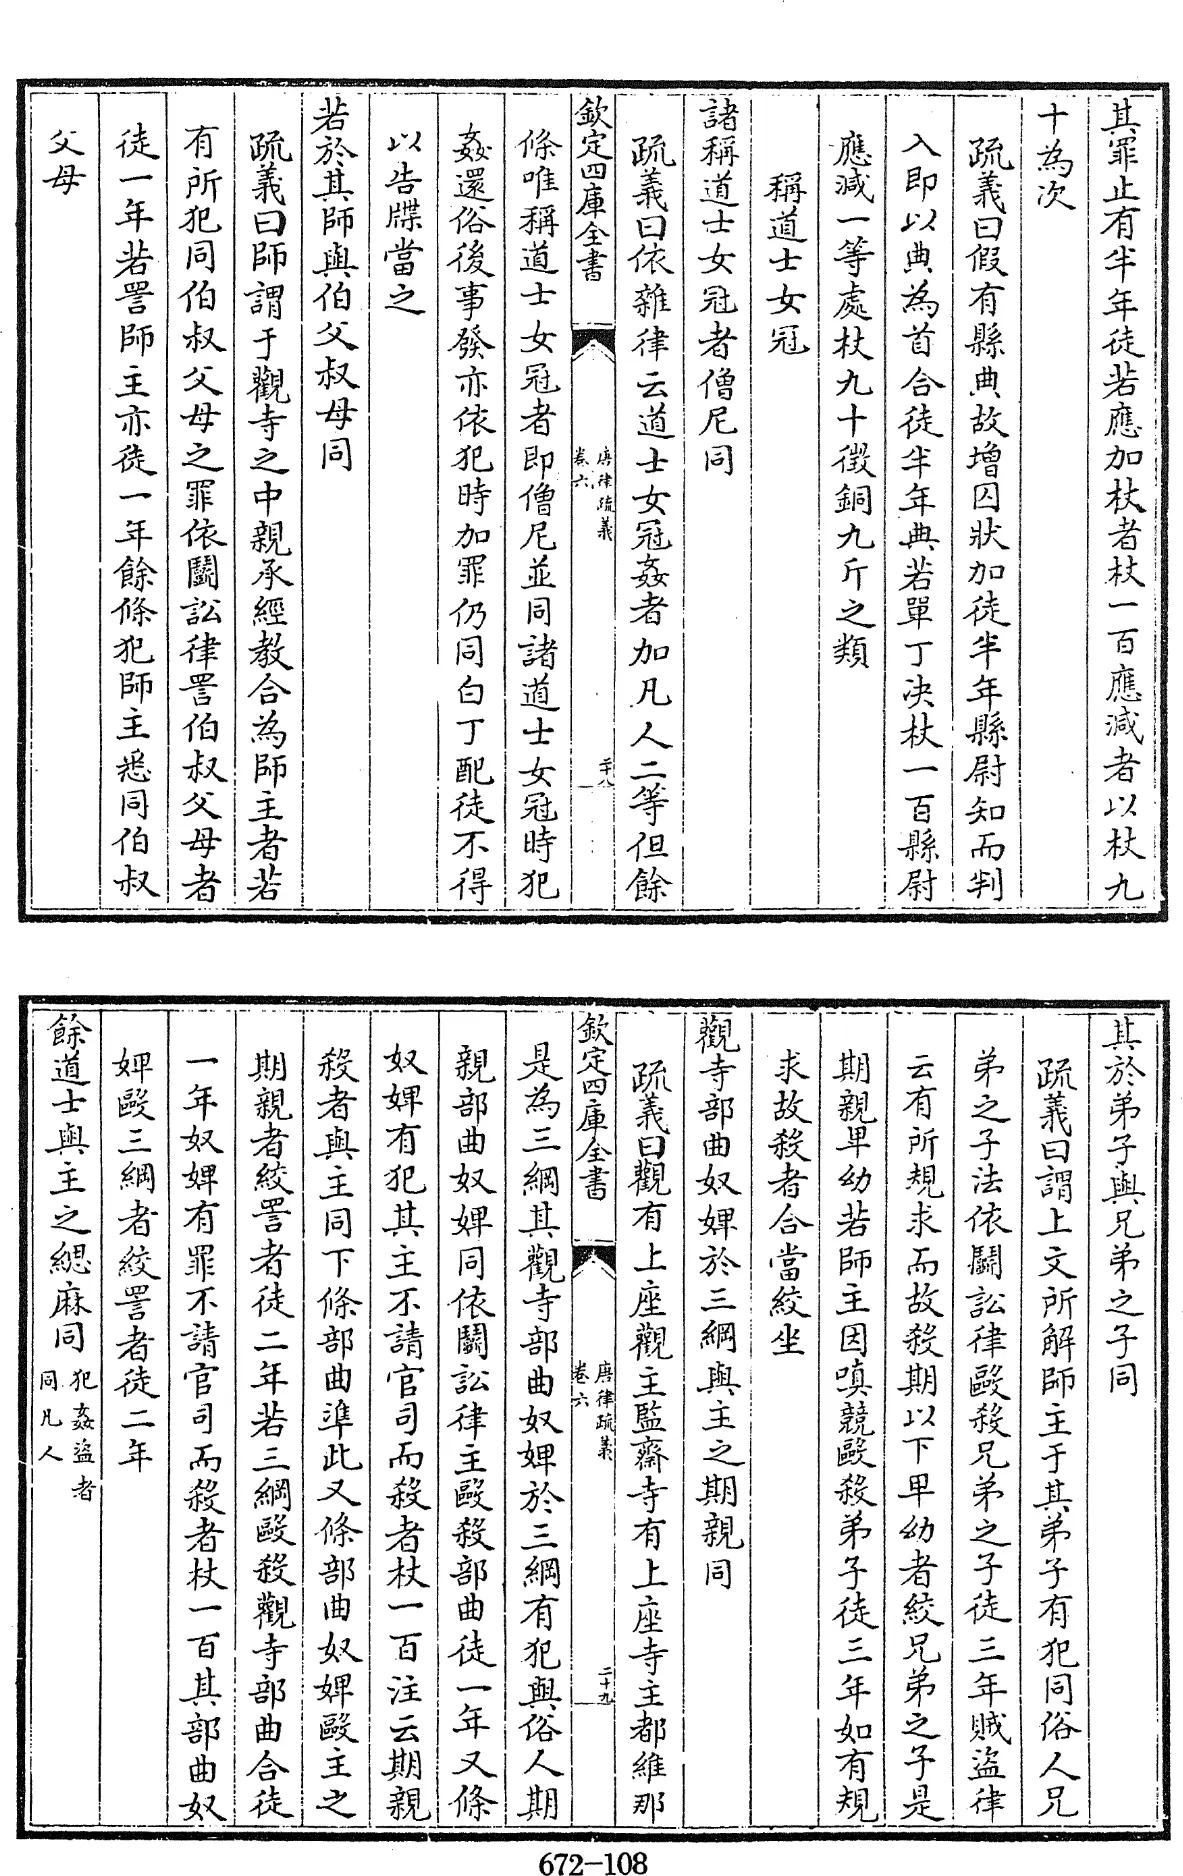 其罪止有半年徒若應加杖者杖一百應減者以杖九
十為次
疏義曰假有縣典故增囚狀加徒半年縣尉知而判
入即以典為首合徒半年典若單丁决杖一百縣尉
應減一等處杖九十徴銅九斤之類
稱道士女冠
諸稱道士女冠者僧尼同
疏義曰依雜律云道士女冠姦者加凡人二等但餘
欽定四庫全書
唐律疏義
卷六
二十八
條唯稱道士女冠者即僧尼並同諸道士女冠時犯
姦還俗後事發亦依犯時加罪仍同白丁配徒不得
以告牒當之
若於其師與伯父叔母同
疏義曰師謂于觀寺之中親承經教合為師主者若
有所犯同伯叔父母之罪依鬭訟律詈伯叔父母者
徒一年若詈師主亦徒一年餘條犯師主悉同伯叔
父母
其於弟子與兄弟之子同
疏義曰謂上文所解師主于其弟子有犯同俗人兄
弟之子法依鬭訟律毆殺兄弟之子徒三年賊盜律
云有所規求而故殺期以下卑幼者絞兄弟之子是
期親卑幼若師主因嗔競毆殺弟子徒三年如有規
求故殺者合當絞坐
觀寺部曲奴婢於三綱與主之期親同
疏義曰觀有上座觀主監齋寺有上座寺主都維那
欽定四庫全書
唐律疏義
卷六
二十九
是為三綱其觀寺部曲奴婢於三綱有犯與俗人期
親部曲奴婢同依鬭訟律主毆殺部曲徒一年又條
奴婢有犯其主不請官司而殺者杖一百注云期親
殺者與主同下條部曲準此又條部曲奴婢毆主之
期親者絞詈者徒二年若三綱毆殺觀寺部曲合徒
一年奴婢有罪不請官司而殺者杖一百其部曲奴
婢毆三綱者絞詈者徒二年
餘道士與主之緦麻同犯姦盜者同凡人
672-108